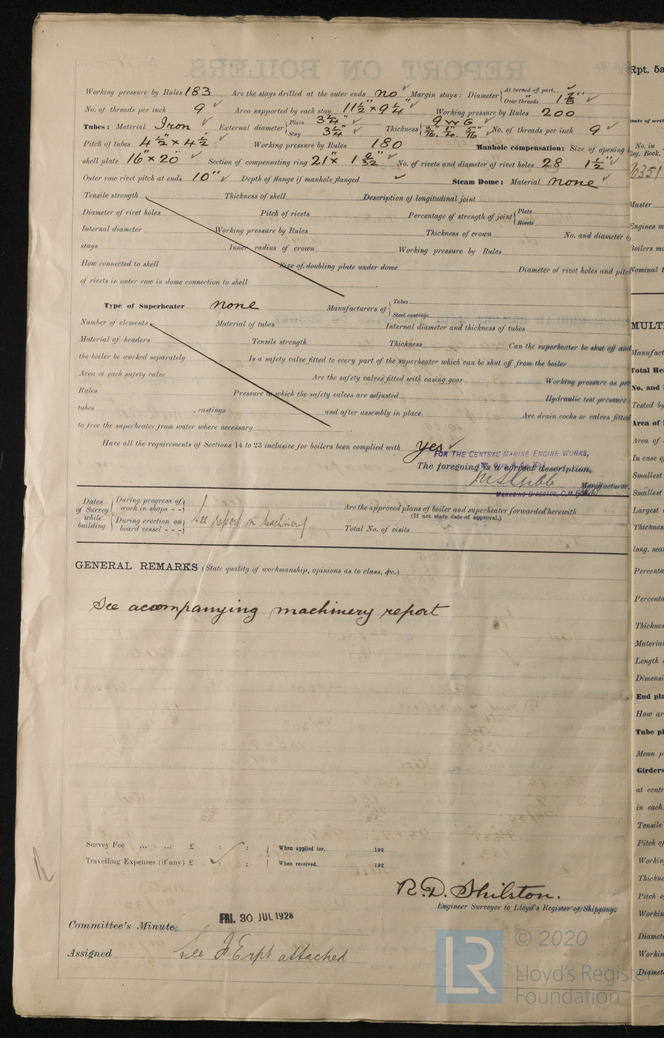 Working pressure by Rules 183 Are the stays drilled at the outer ends no Margin stays: Diameter { At turned off part, Over threads 1 7/8"
No. of threads per inch 9 Area supported by each stay 11 1/2" x 9 1/4" Working pressure by Rules 200
Tubes: Material Iron External diameter { Plain 3 1/4" Stay 3 1/4" Thickness { 9 WG 5/16" 1/4" 5/16" No. of threads per inch 9
Pitch of tubes 4 1/2" x 4 1/2" Working pressure by Rules 180 Manhole compensation: Size of opening
shell plate 16" x 20" Section of compensating ring 21" x 1 9/32" No. of rivets and diameter of rivet holes 28 1 1/2"
Outer row rivet pitch at ends 10" Depth of flange if manhole flanged Steam Dome: Material none
Tensile strength Thickness of shell Description of longitudinal joint
Diameter of rivet holes Pitch of rivets Percentage of strength of joint { Plate Rivets
Internal diameter Working pressure by Rules Thickness of crown No. and diameter o
stays Inner radius of crown Working pressure by Rules
How connected to shell Size of doubling plate under dome Diameter of rivet holes and pitc
of rivets in outer row in dome connection to shell
Type of Superheater none Manufacturers of { Tubes Steel castings
Number of elements Material of tubes Internal diameter and thickness of tubes
Material of headers Tensile strength Thickness Can the superheater be shut off and
the boiler be worked separately Is a safety valve fitted to every part of the superheater which can be shut off from the boiler
Area of each safety valve Are the safety valves fitted with easing gear Working pressure as per
Rules Pressure to which the safety valves are adjusted Hydraulic test pressure
tubes , castings and after assembly in place Are drain cocks or valves fitted
to free the superheater from water where necessary
Have all the requirements of Sections 14 to 23 inclusive for boilers been complied with yes
FOR THE CENTRAL MARINE ENGINE WORKS,
The foregoing is a correct description,
Manufacturer.
MANAGING DIRECTOR, C.M.E.W.
Dates of Survey while building { During progress of work in shops - - During erection on board vessel - - - } See report on Machinery. Are the approved plans of boiler and superheater forwarded herewith
(If not state date of approval.)
Total No. of visits
GENERAL REMARKS (State quality of workmanship, opinions as to class, &c.)
See accompanying machinery report
Survey Fee ... ... £ : : When applied for, 192
Travelling Expenses (if any) £ : : When received, 192
R.D. Shilston.
Engineer Surveyor to Lloyd's Register of Shipping.
Committee's Minute FRI. 30 JUL 1926
Assigned See J. E. rpt attached
© 2020
LR Lloyd's Register
Foundation
Rpt. 5a
No. in
Reg. Book.
Master
Engines m
Boilers m
Nominal
MULT
Manufact
Total He
No. and
Tested by
Area of
Area of
In case o
Smallest
Smallest
Largest
Thickness
long. sea
Percenta
Percenta
Thicknes
Material
Length
Dimensi
End pla
How ar
Tube pl
Mean p
Girders
at centr
in each
Tensile
Pitch of
Workin
Thickne
Pitch o
Workin
Diamete
Workin
Diamete